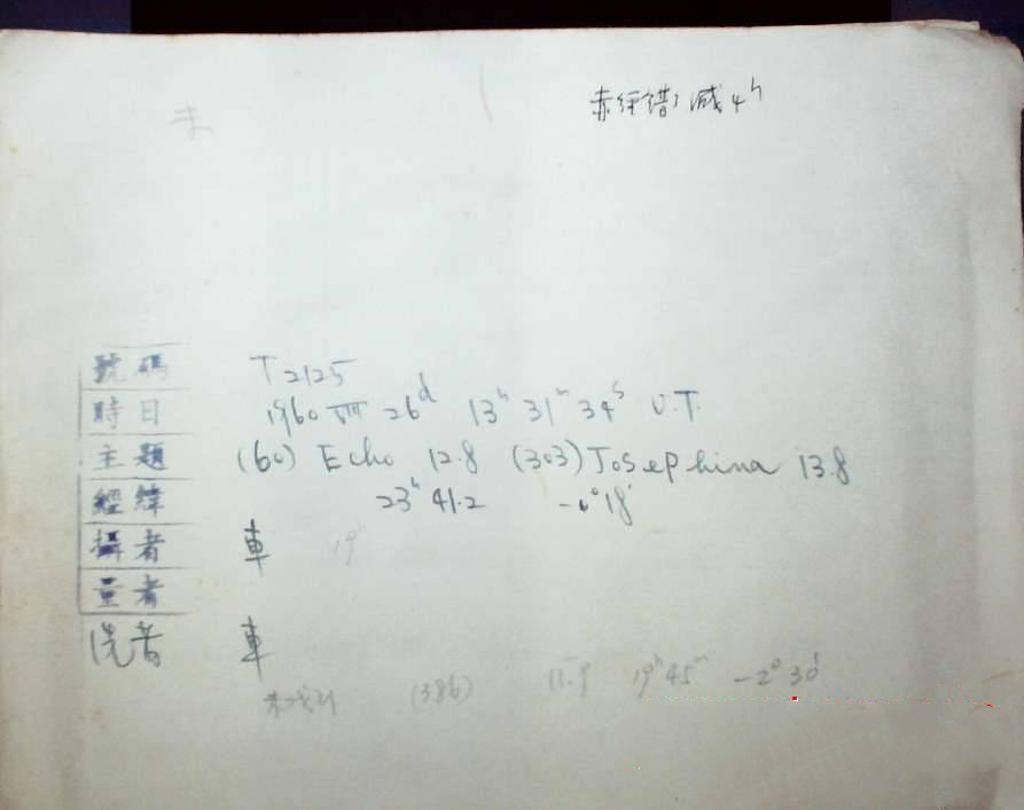 赤经错了 减4h
未
號碼 T2125
時日 1960 VIII 26d 13h 31m 34s U.T.
主題 (60) Echo 12.8 (303) Josephina 13.8
經緯 23h 41.2 -6°18'
攝者 車 19h
量者
洗者 車
(386) 11.9 19h45m -2°30'